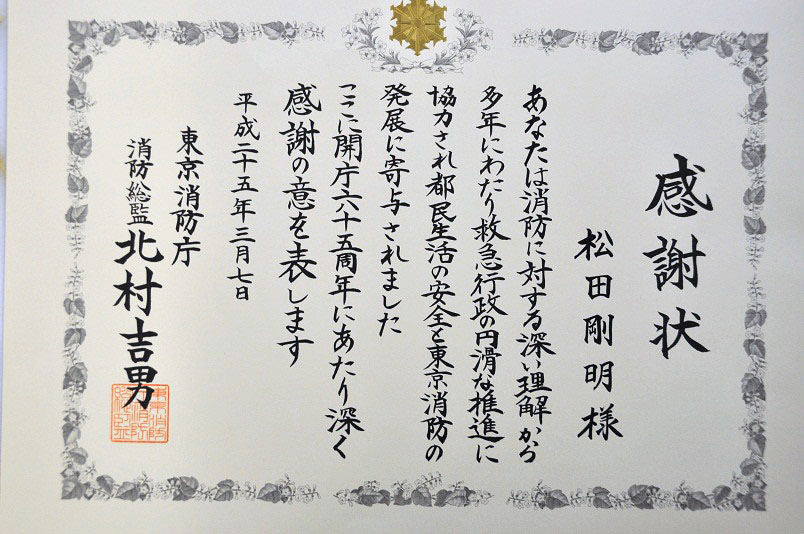 感謝状
松田剛明様
あなたは消防に対する深い理解から
多年にわたり救急行政の円滑な推進に
協力され都民生活の安全と東京消防の
発展に寄与されました
ここに開庁六十五周年にあたり深く
感謝の意を表します
平成二十五年三月七日
東京消防庁
消防総監 北村吉男